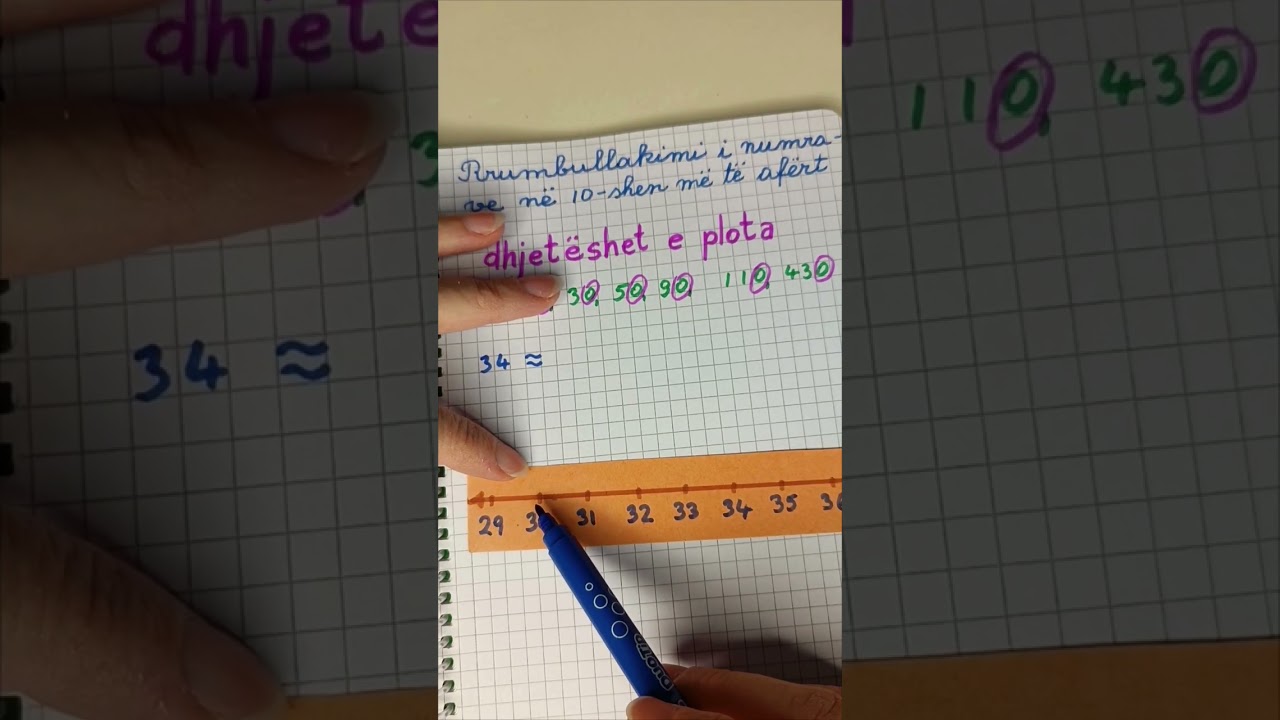 Rrumbullakimi i numra-
ve në 10-shen më të afërt
dhjetëshet e plota
30, 50, 90, 110, 430
34 ≈
29 31 32 33 34 35 36